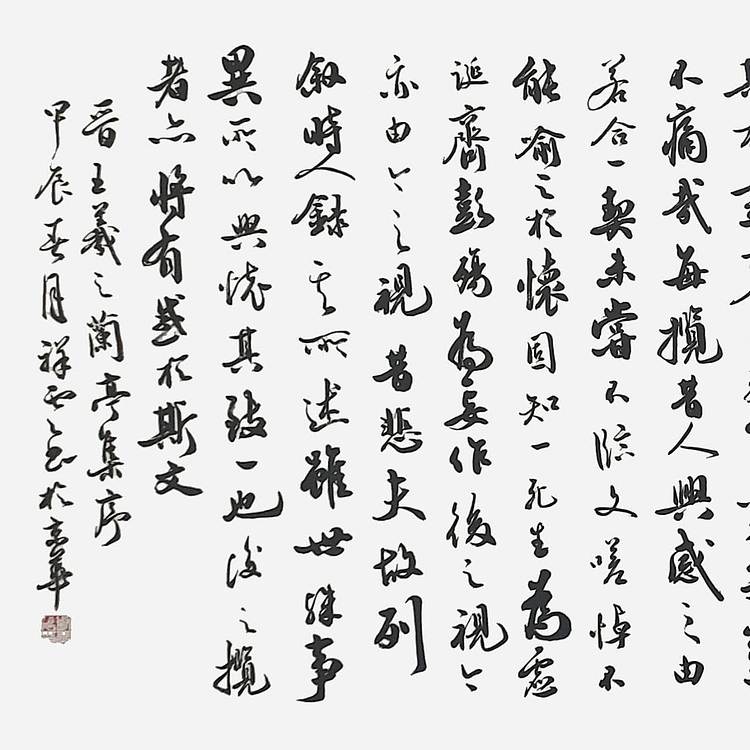 不痛哉每攬昔人興感之由
若合一契未嘗不臨文嗟悼不
能喻之於懷固知一死生為虛
誕齊彭殤為妄作後之視今
亦由今之視昔悲夫故列
敘時人錄其所述雖世殊事
異所以興懷其致一也後之攬
者亦將有感於斯文
晉王羲之蘭亭集序
甲辰春月祥雲書於京華